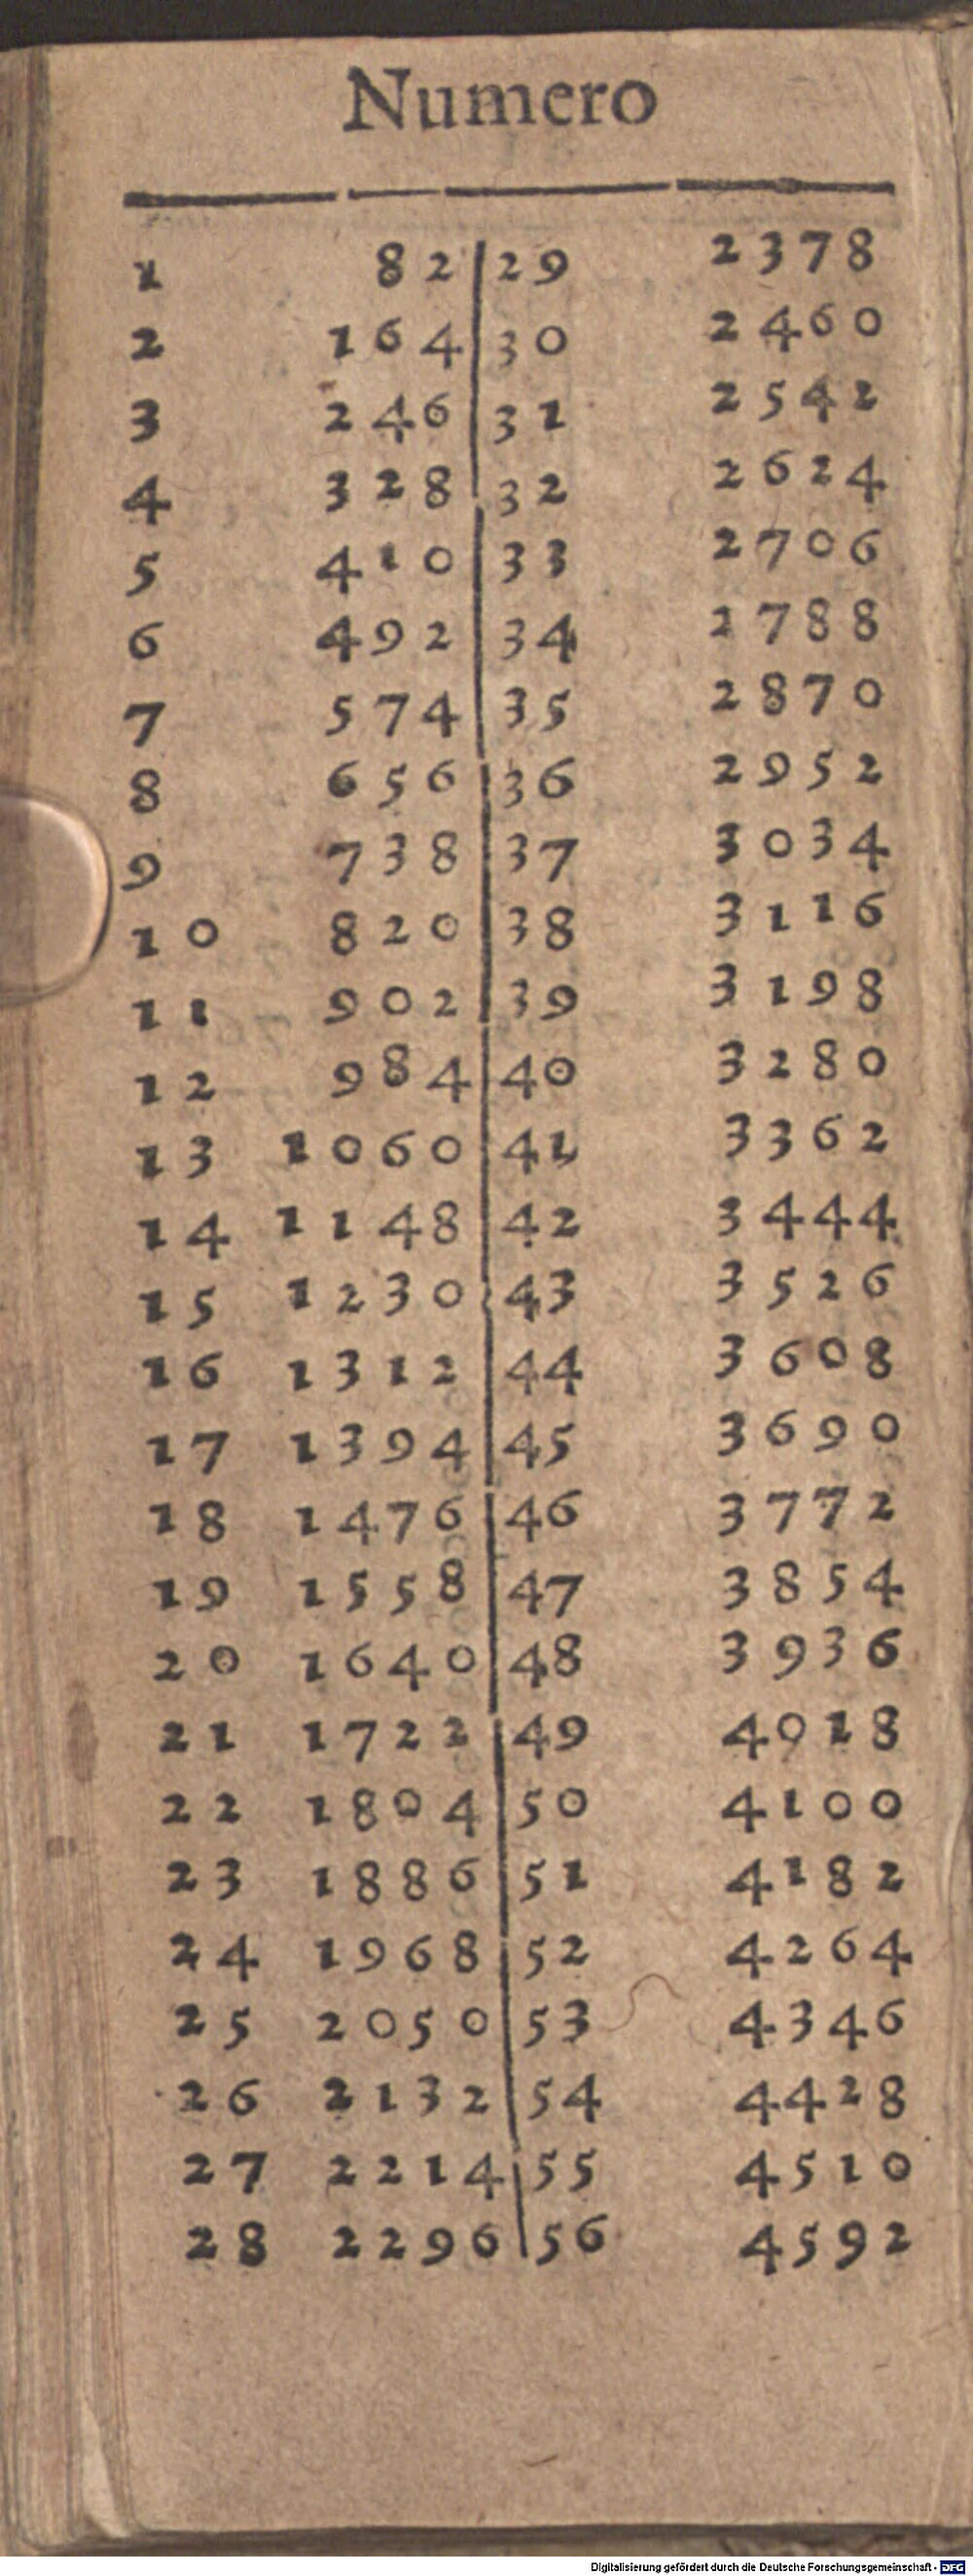 Numero
1 82 29 2378
2 164 30 2460
3 246 31 2542
4 328 32 2624
5 410 33 2706
6 492 34 2788
7 574 35 2870
8 656 36 2952
9 738 37 3034
10 820 38 3116
11 902 39 3198
12 984 40 3280
13 1060 41 3362
14 1148 42 3444
15 1230 43 3526
16 1312 44 3608
17 1394 45 3690
18 1476 46 3772
19 1558 47 3854
20 1640 48 3936
21 1722 49 4018
22 1804 50 4100
23 1886 51 4182
24 1968 52 4264
25 2050 53 4346
26 2132 54 4428
27 2214 55 4510
28 2296 56 4592
Digitalisierung gefördert durch die Deutsche Forschungsgemeinschaft - DFG